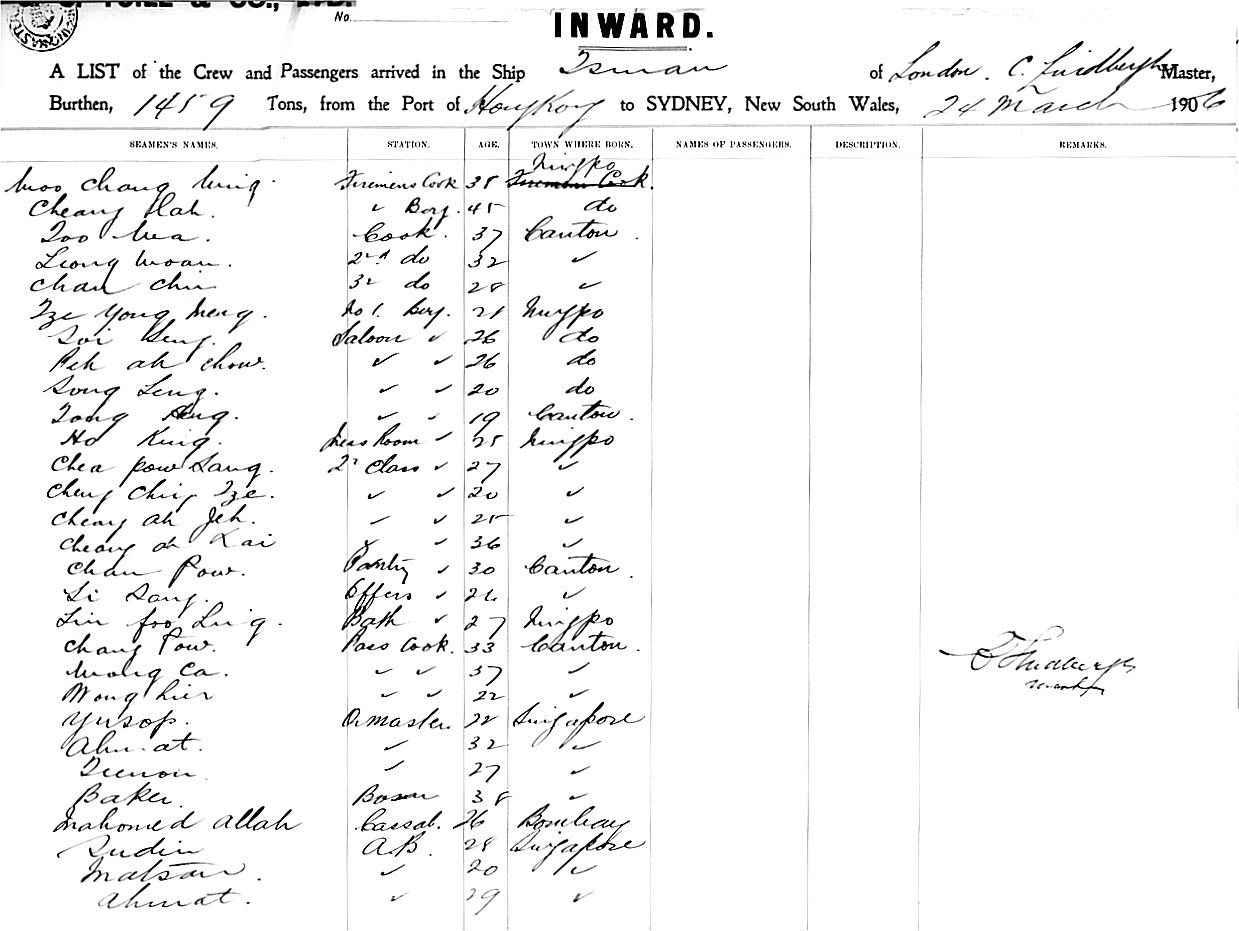 & CO., LTD.
No.
INWARD.
A LIST of the Crew and Passengers arrived in the Ship Tsinan of London. C. Lindbergh Master,
Burthen, 1459 Tons, from the Port of HongKong to SYDNEY, New South Wales, 24 March 1906
SEAMEN'S NAMES. STATION. AGE. TOWN WHERE BORN. NAMES OF PASSENGERS. DESCRIPTION. REMARKS.
Ningpo
Woo Chang Ming. Firemens Cook 38 Firemens Cook.
Cheang Hah. " Boy. 45 do
Too Wea. Cook. 37 Canton.
Leong Woan. 2nd do 32 "
Chan Chin 3rd do 28 "
Tze Yong Meng. No 1. Boy. 21 Ningpo
Soi Seng. Saloon " 26 do
Peh ah Chow. " " 26 do
Song Leng. " " 20 do
Tong Hung. " " 19 Canton.
Ho King. Mess Room " 25 Ningpo
Chea pow Sang. 2nd Class " 27 "
Cheng Ching Tze. " " 20 "
Cheang ah Jeh. " " 25 "
Cheang ah Kai " " 36 "
Chan Pow. Pantry " 30 Canton.
Li Sang. Offcrs " 26 "
Lin foo Ling. Bath " 27 Ningpo
Chang Pow. Pass Cook. 33 Canton.
Wong Ca. " " 37 "
Wong Hin " " 22 "
C Lindbergh
Master
Yusop. Qrmaster. 22 Singapore
Ahmat. " 32 "
" 27 "
Baker. Bosun 38 "
Mahomed Allah Cassab. 26 Bombay
Sudin A.B. 28 Singapore
Matsan. " 20 "
Ahmat. " 29 "